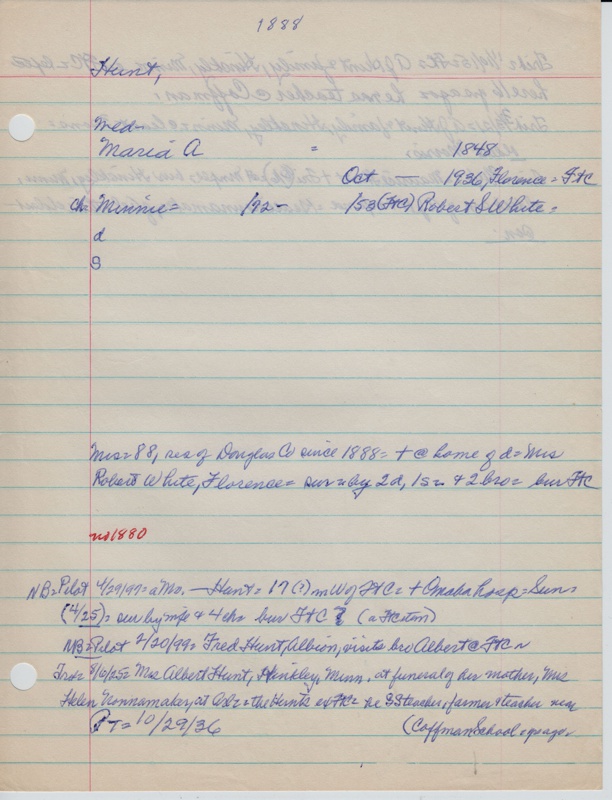 1888
Hunt,
Wed-
Maria A = 1848
Oct — 1936, Florence = FtC
ch. Minnie = /72 - /53 (FtC) Robert S White =
d
S
Mrs = 88, res of Douglas Co since 1888 = + @ home of d = Mrs
Robert White, Florence = sur = by 2d, 1s = + 2 bro = bur FtC
no 1880
NB = Pilot 4/29/97 = a Mr. — Hunt = 17 (?) m W of FtC = + Omaha hosp = Sun =
(4/25) = sur by wife + 4 ch = bur FtC ? (a FtC item)
NB = Pilot 2/20/99 = Fred Hunt, Albion, visits bro Albert @ FtC ~
8/6/25 = Mrs Albert Hunt, Hinkley, Minn., at funeral of her mother, Mrs
Helen Nonnamaker, at = the Hunts ex FtC = he SS teacher, farmer + teacher near
T = 10/29/36 (Coffman School = gage.